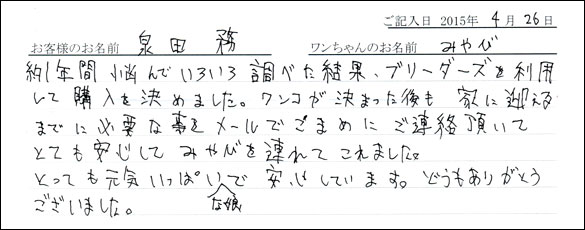 ご記入日 2015年 4月 26日
お客様のお名前 泉田 務 ワンちゃんのお名前 みやび
約1年間 悩んでいろいろ調べた結果、ブリーダーズを利用
して購入を決めました。ワンコが決まった後も 家に迎える
までに必要な事をメールでこまめに ご連絡頂いて
とても安心して みやびを連れて これました。
とっても元気いっぱいで 安心しています。どうもありがとう
な娘
ございました。